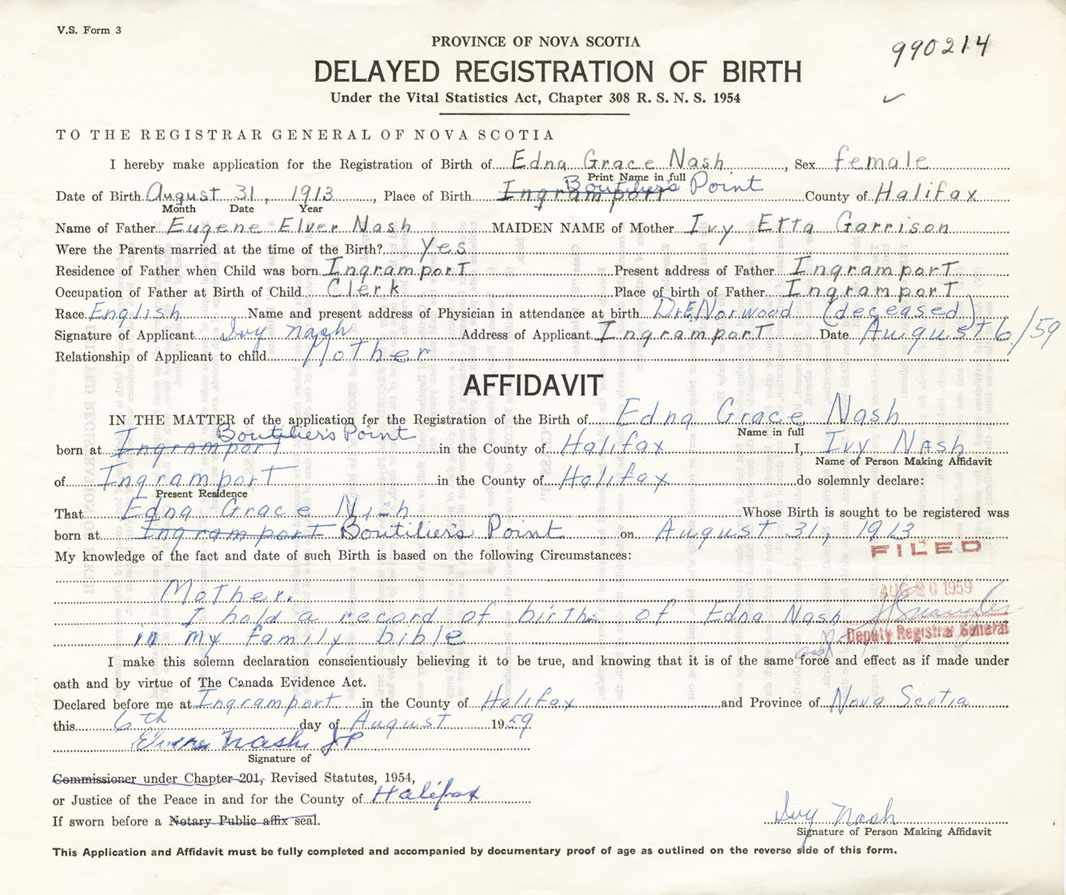 V.S. Form 3
990214
PROVINCE OF NOVA SCOTIA
DELAYED REGISTRATION OF BIRTH
Under the Vital Statistics Act, Chapter 308 R. S. N. S. 1954
TO THE REGISTRAR GENERAL OF NOVA SCOTIA
I hereby make application for the Registration of Birth of Edna Grace Nash, Sex female
Print Name in full
Date of Birth August 31, 1913, Place of Birth Ingramport Boutiliers Point County of Halifax
Month Date Year
Name of Father Eugene Elver Nash MAIDEN NAME of Mother Ivy Etta Garrison
Were the Parents married at the time of the Birth? Yes
Residence of Father when Child was born Ingramport Present address of Father Ingramport
Occupation of Father at Birth of Child Clerk Place of birth of Father Ingramport
Race English Name and present address of Physician in attendance at birth Dr E Norwood (deceased)
Signature of Applicant Ivy Nash Address of Applicant Ingramport Date August 6/59
Relationship of Applicant to child Mother
AFFIDAVIT
IN THE MATTER of the application for the Registration of the Birth of Edna Grace Nash
Name in full
born at Ingramport Boutiliers Point in the County of Halifax I, Ivy Nash
Name of Person Making Affidavit
of Ingramport in the County of Halifax do solemnly declare:
Present Residence
That Edna Grace Nash Whose Birth is sought to be registered was
born at Ingramport Boutiliers Point on August 31, 1913
My knowledge of the fact and date of such Birth is based on the following Circumstances:
FILED
AUG 20 1959
Mother.
I hold a record of births of Edna Nash
in my family bible
Deputy Registrar General
I make this solemn declaration conscientiously believing it to be true, and knowing that it is of the same force and effect as if made under
oath and by virtue of The Canada Evidence Act.
Declared before me at Ingramport in the County of Halifax and Province of Nova Scotia
this 6th day of August 1959
Nash JP
Signature of
Commissioner under Chapter 201, Revised Statutes, 1954,
or Justice of the Peace in and for the County of Halifax
If sworn before a Notary Public affix seal.
Ivy Nash
Signature of Person Making Affidavit
This Application and Affidavit must be fully completed and accompanied by documentary proof of age as outlined on the reverse side of this form.